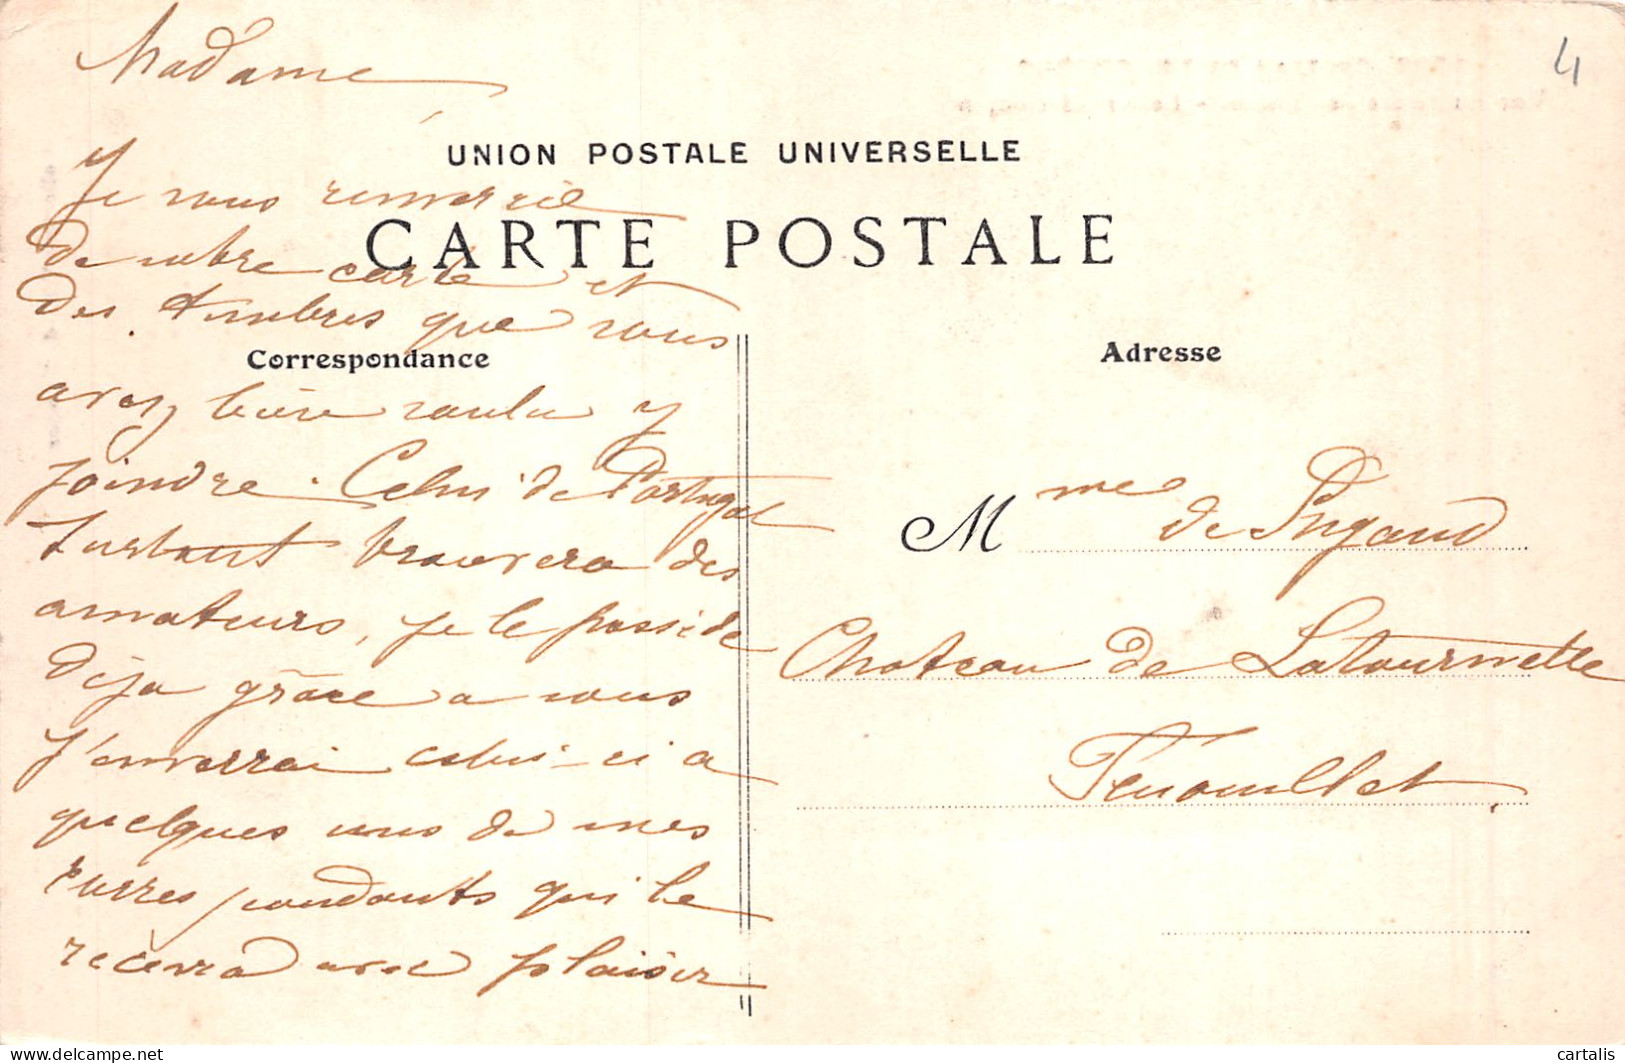 4
Madame
UNION POSTALE UNIVERSELLE
Je vous remercie
CARTE POSTALE
de votre carte et
des timbres que vous
Correspondance
avez bien voulu y
joindre. Celui de Portugal
surtout trouvera des
amateurs, je le possède
déja grâce a vous
j'enverrai celui-ci a
quelques uns de mes
correspondants qui le
recevra avec plaisir
Adresse
Mme de Pigaud
Chateau de Latournelle
Fenouillet
delcampe.net
cartalis